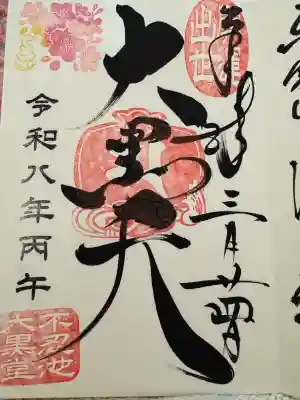 奉拝
三月廿四日
大黒天
令和八年丙午
不忍池
大黒堂
出世